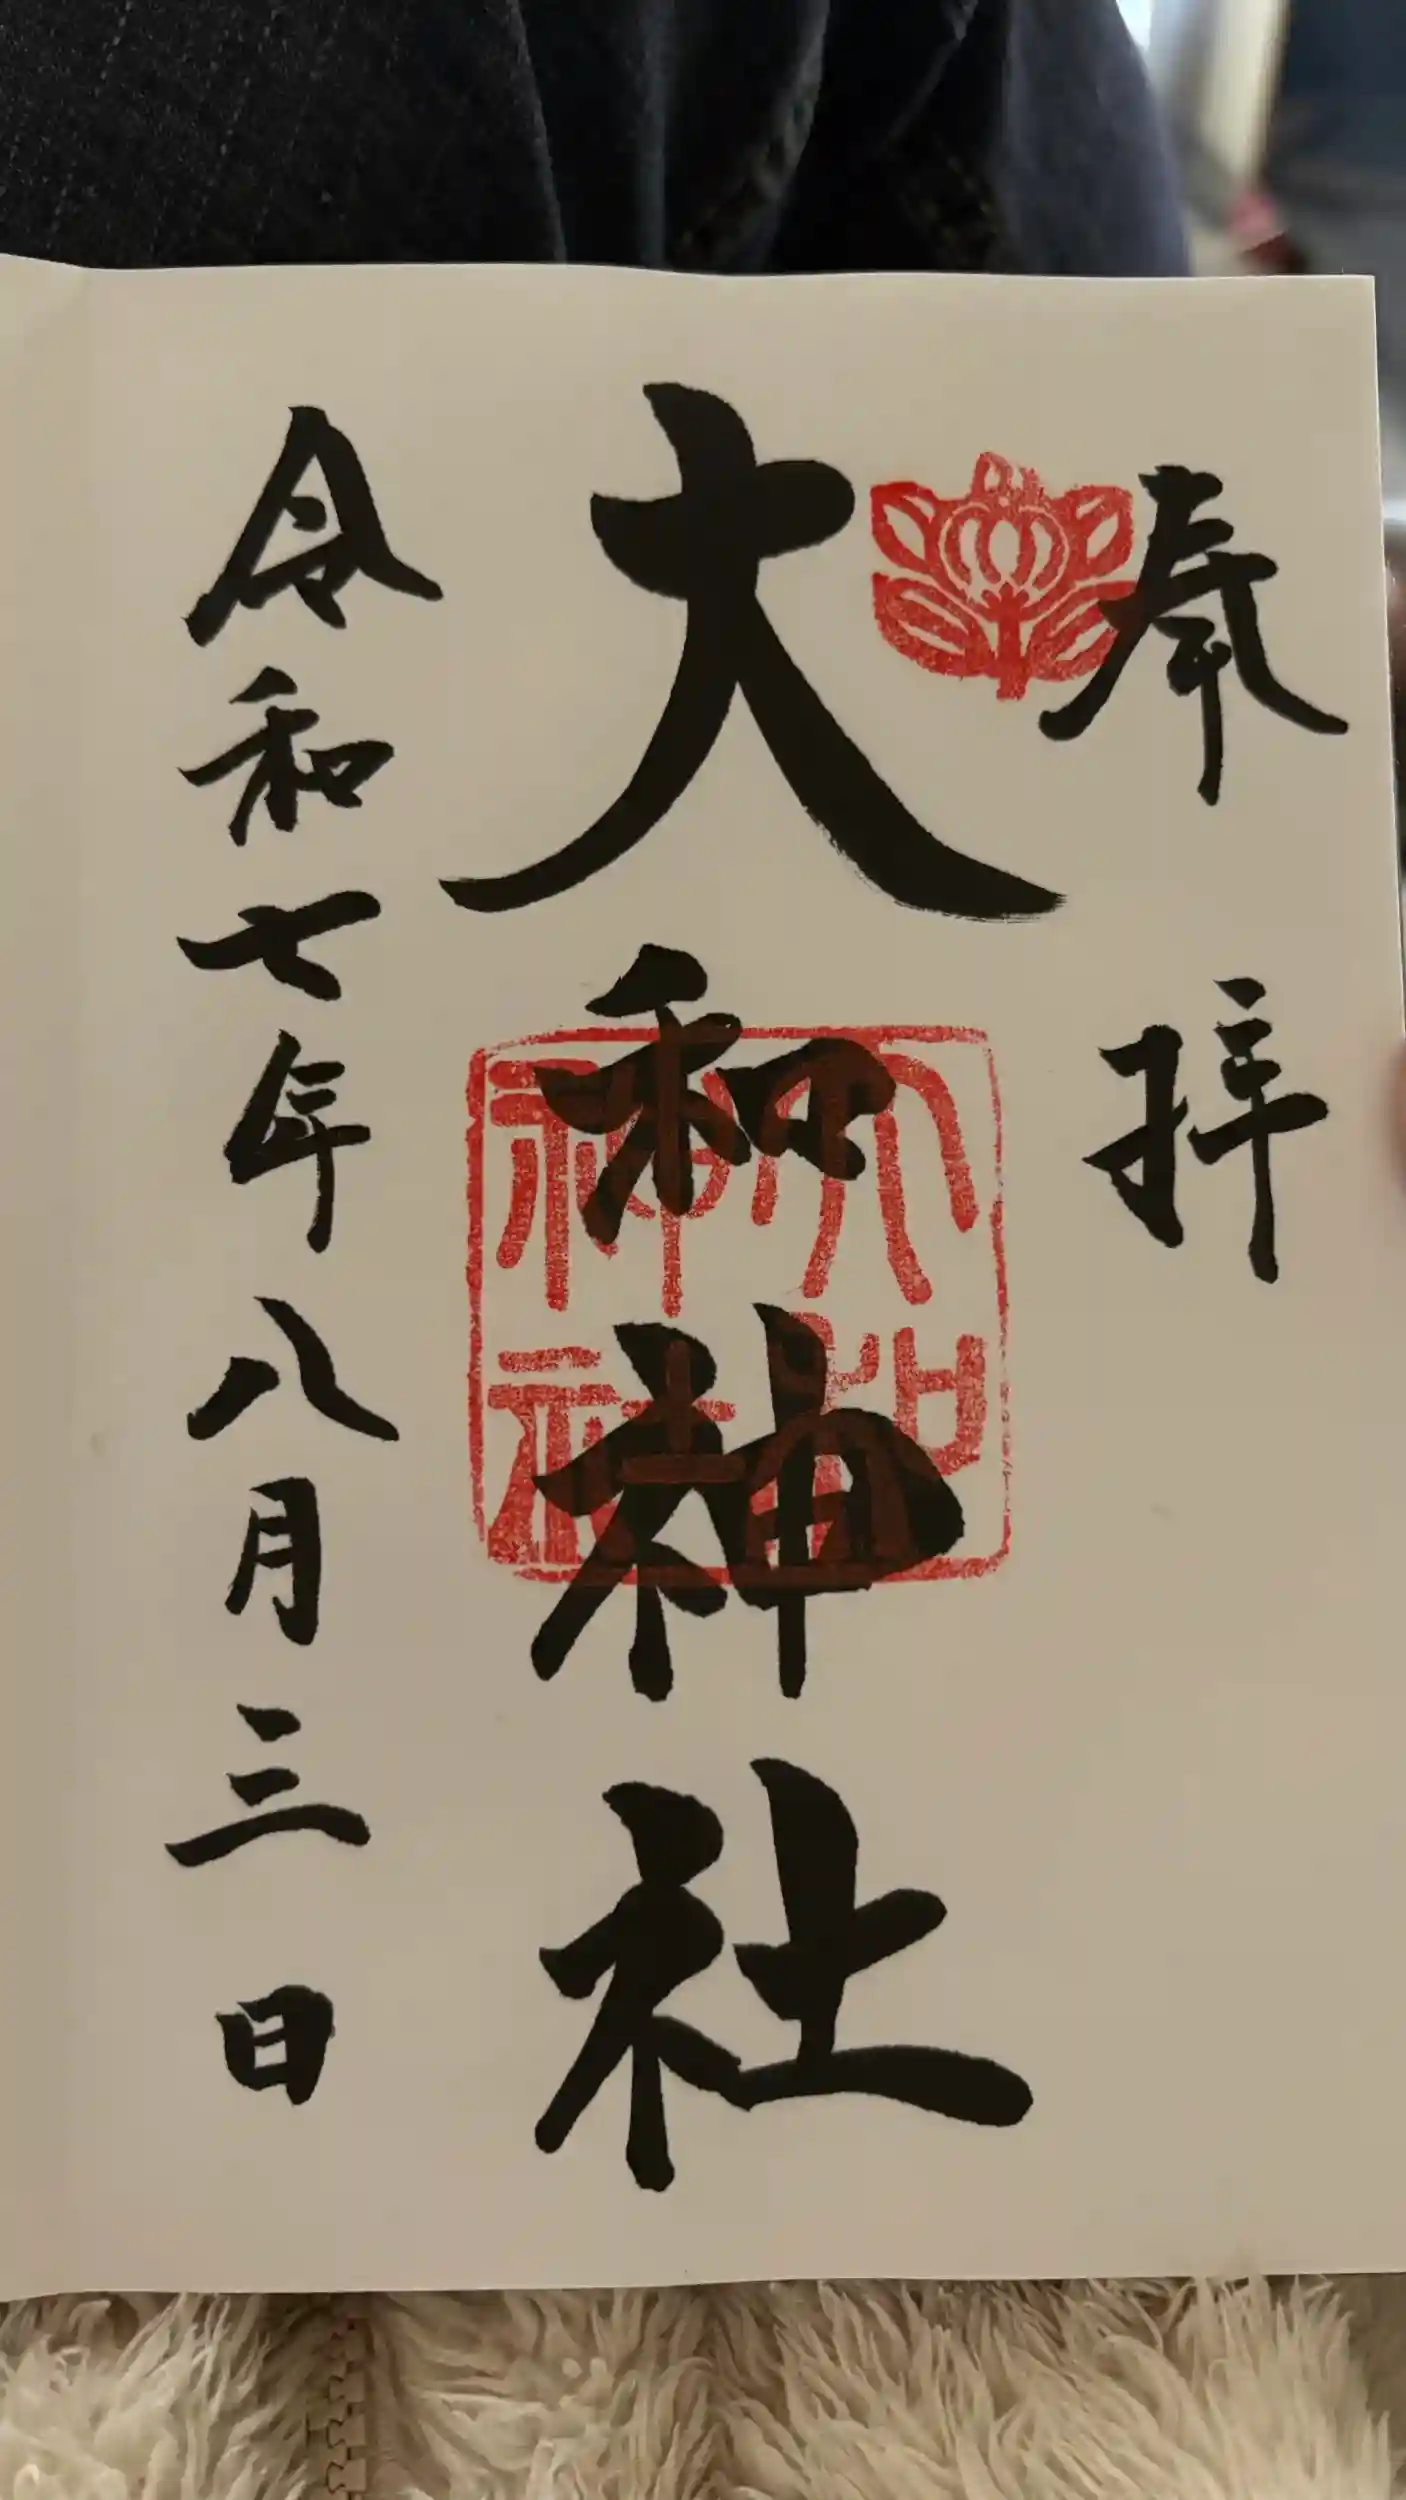 奉拝
大和神社
大和神社
令和七年八月三日